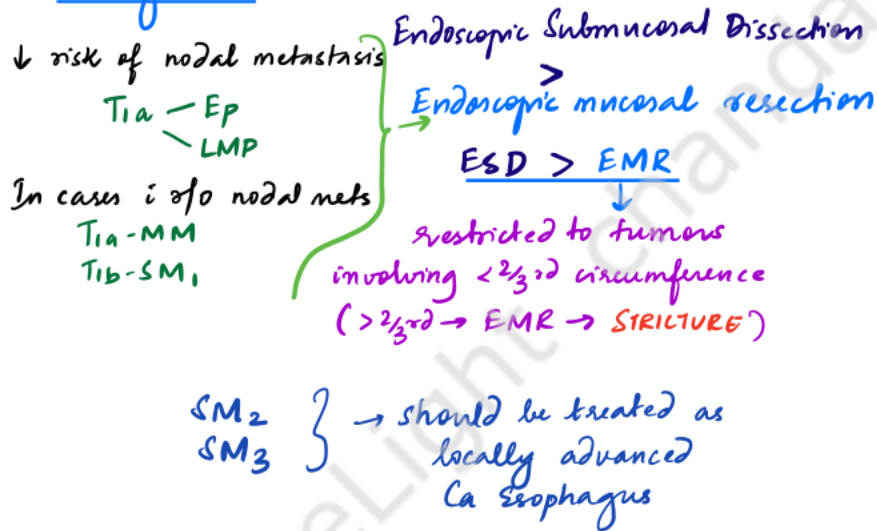 ↓ risk of nodal metastasis
T1a - Ep
LMP
In cases c̄ r/o nodal mets
T1a-MM
T1b-SM1
Endoscopic Submucosal Dissection
>
→ Endoscopic mucosal resection
ESD > EMR
↓
restricted to tumors
involving <2/3rd circumference
(>2/3rd → EMR → STRICTURE)
SM2
SM3
→ should be treated as
locally advanced
Ca Esophagus